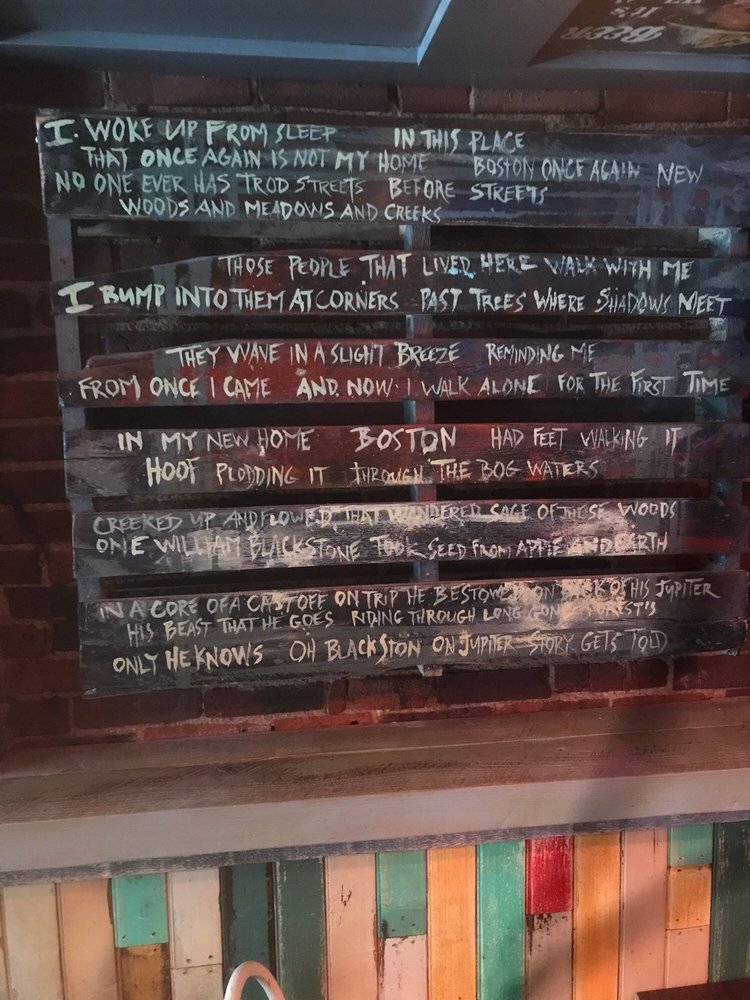 BEER
IT'S
I. WOKE UP FROM SLEEP IN THIS PLACE
THAT ONCE AGAIN IS NOT MY HOME BOSTON ONCE AGAIN NEW
NO ONE EVER HAS TROD STREETS BEFORE STREETS
WOODS AND MEADOWS AND CREEKS
THOSE PEOPLE THAT LIVED HERE WALK WITH ME
I BUMP INTO THEM AT CORNERS PAST TREES WHERE SHADOWS MEET
THEY WAVE IN A SLIGHT BREEZE REMINDING ME
FROM ONCE I CAME AND NOW I WALK ALONE FOR THE FIRST TIME
IN MY NEW HOME BOSTON HAD FEET WALKING IT
HOOF PLODDING IT THROUGH THE BOG WATERS
CREEKED UP AND FLOWED THAT WANDERED SAGE OF THESE WOODS
ONE WILLIAM BLACKSTONE TOOK SEED FROM APPLE AND EARTH
IN A CORE OF A CAST OFF ON TRIP HE BESTOWED ON BACK OF HIS JUPITER
HIS BEAST THAT HE GOES RIDING THROUGH LONG GONE FOREST'S
ONLY HE KNOWS OH BLACKSTON ON JUPITER STORY GETS TOLD